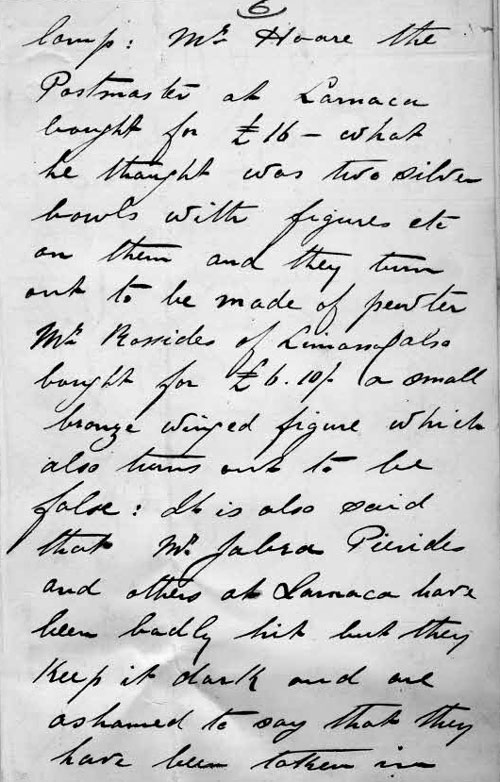 6
lamp: Mr Hoare the
Postmaster at Larnaca
bought for £16 - what
he thought was two silver
bowls with figures etc
on them and they turn
out to be made of pewter
Mr Rossides of Limassol also
bought for £6.10/- a small
bronze winged figure which
also turns out to be
false: It is also said
that Mr Jabra Pierides
and others at Larnaca have
been badly hit but they
keep it dark and are
ashamed to say that they
have been taken in